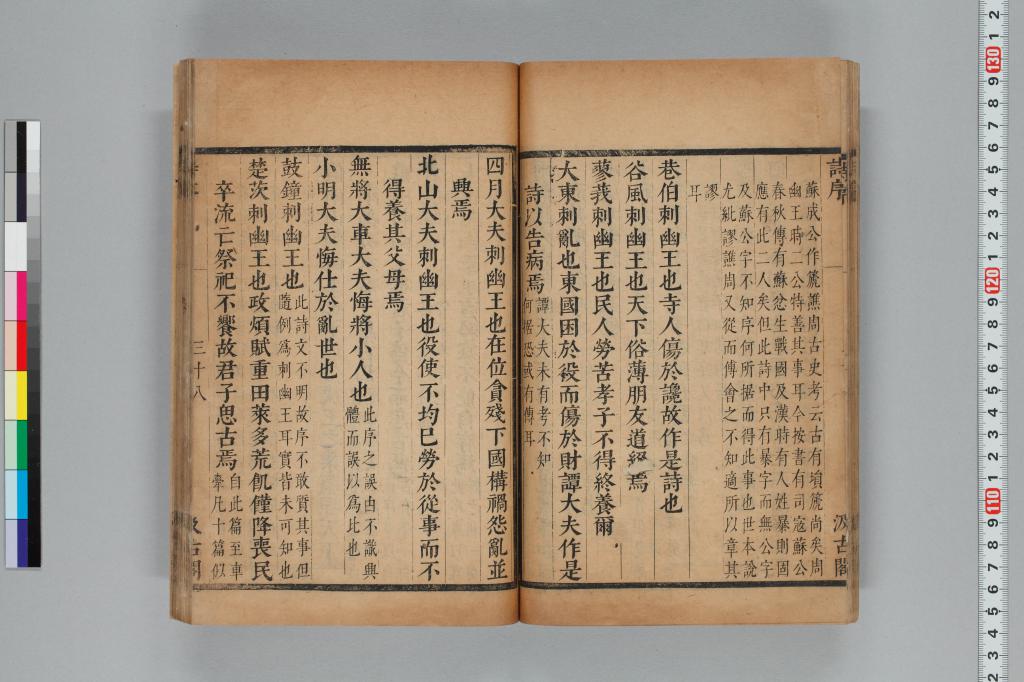 詩序
汲古閣
蘇成公作箎譙周古史考云古有塤箎尚矣周
幽王時二公特善其事耳今按書有司寇蘇公
春秋傳有蘇忿生戰國及漢時有人姓暴則固
應有此二人矣但此詩中只有暴字而無公字
及蘇公字不知序何所据而得此事也世本說
尤紕謬譙周又從而傳會之不知適所以章其
謬
耳
巷伯刺幽王也寺人傷於讒故作是詩也
谷風刺幽王也天下俗薄朋友道絕焉
蓼莪刺幽王也民人勞苦孝子不得終養爾
大東刺亂也東國困於役而傷於財譚大夫作是
詩以告病焉譚大夫未有考不知
何据恐或有傳耳
四月大夫刺幽王也在位貪殘下國構禍怨亂並
興焉
北山大夫刺幽王也役使不均已勞於從事而不
得養其父母焉
無將大車大夫悔將小人也此序之誤由不識興
體而誤以為此也
小明大夫悔仕於亂世也
鼓鐘刺幽王也此詩文不明故序不敢質其事但
隨例為刺幽王耳實皆未可知也
楚茨刺幽王也政煩賦重田萊多荒飢饉降喪民
卒流亡祭祀不饗故君子思古焉自此篇至車
舝凡十篇似
三十八
汲古閣